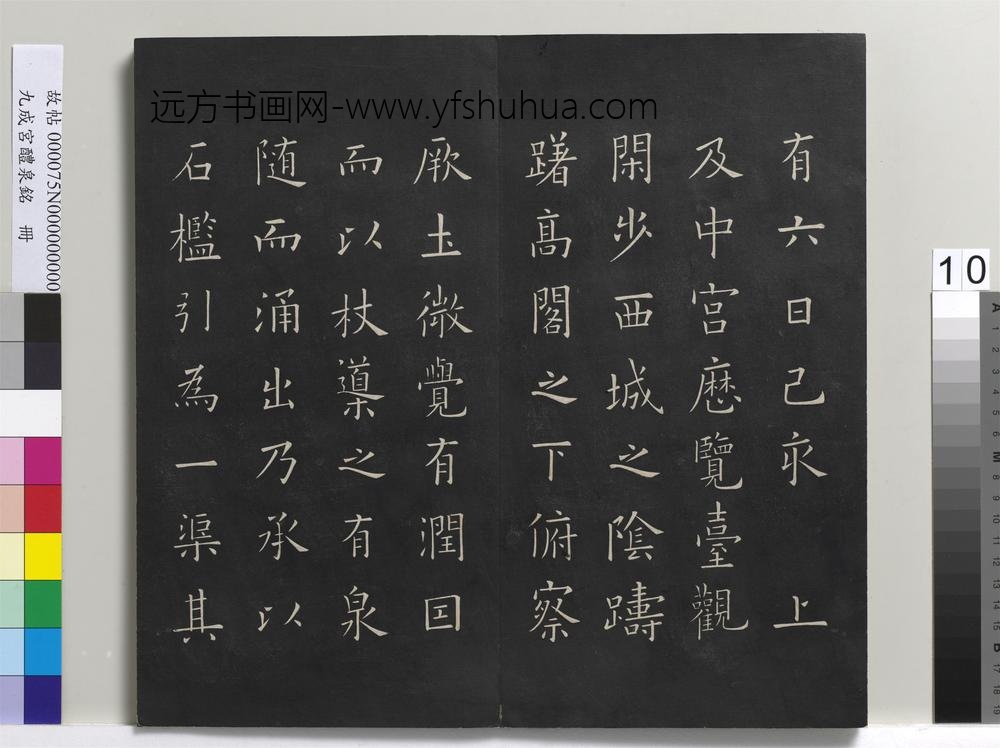 远方书画网-www.yfshuhua.com
有六日己亥 上
及中宫歷覽臺觀
閑步西城之陰躊
躇髙閣之下俯察
厥土微覺有潤因
而以杖導之有泉
随而涌出乃承以
石檻引為一渠其
故帖 000075N000000000
九成宮醴泉銘 冊
10
A 1 2 3 4 5 6 M 8 9 10 11 12 13 14 15 B 17 18 19